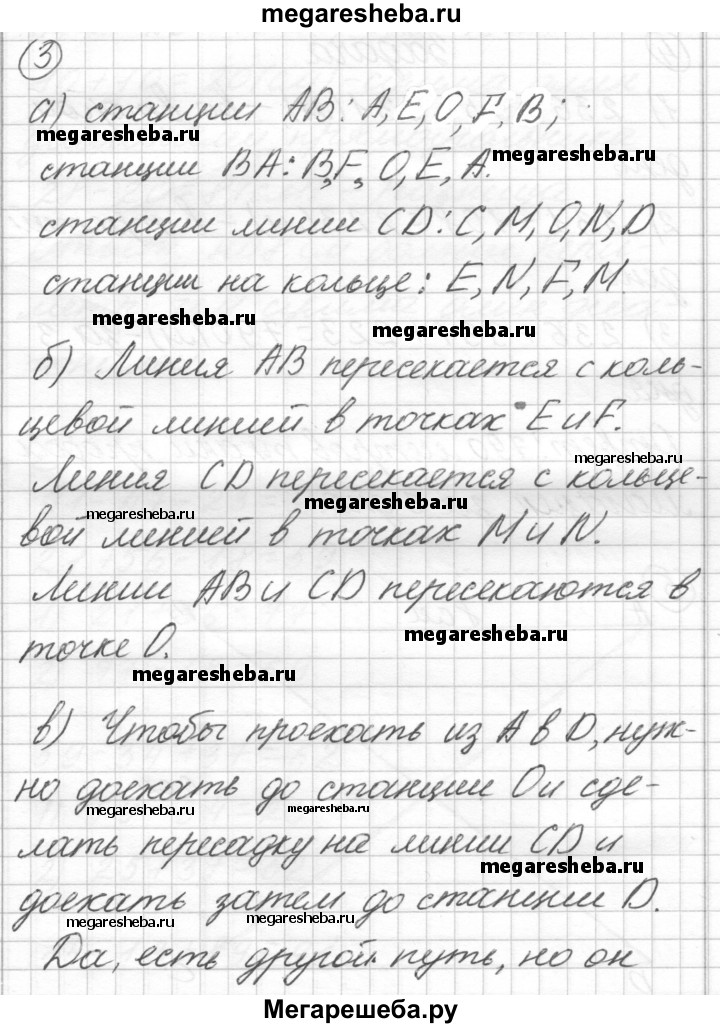 megaresheba.ru
3
а) станции АВ: А, Е, О, F, В;
megaresheba.ru
станции ВА: В, F, О, Е, А.
megaresheba.ru
станции линии CD: С, М, О, N, D
станции на кольце: Е, N, F, М.
megaresheba.ru
megaresheba.ru
б) Линия АВ пересекается с коль-
цевой линией в точках Е и F.
megaresheba.ru
Линия CD пересекается с кольце-
megaresheba.ru
megaresheba.ru
вой линией в точках М и N.
Линии АВ и CD пересекаются в
megaresheba.ru
точке О.
megaresheba.ru
в) Чтобы проехать из А в D, нуж-
но доехать до станции О и сде-
megaresheba.ru
megaresheba.ru
лать пересадку на линии CD и
megaresheba.ru
доехать затем до станции D.
megaresheba.ru
megaresheba.ru
Да, есть другой путь, но он
Мегарешеба.ру